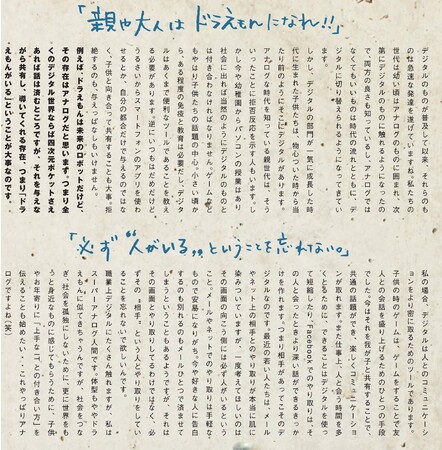 「親や大人はドラえもんになれ!!」
デジタルのものが普及して以来、それらのも
のは急速な発達を遂げていますね。私たちの
世代は幼い頃はアナログのものに囲まれ、次
第にデジタルのものに触れるようになったの
で、両方の良さも知っているし、アナログでは
なくてもいいものは時代の流れとともにデ
ジタルに切り替えられるようになっていま
す。
しかし、デジタルの部門が一気に成長した時
代に生まれた子供たちは、物心ついた時から当
たり前のようにそこにデジタルがあります。
アナログな時代を知っている親世代は、そう
いったことに拒否反応を示す人もいます。し
かし今や幼稚園からパソコンの授業はあり、
社会に出れば当然のようにデジタルのものと
は付き合わなければなりません。ゲームなど
もやはり子供たちの話題の中心。小さい頃か
ら、ある程度の免疫と教養は必要だし、デジタ
ルはあくまで便利なツールであることを教え
る必要があります。逆にいつもはだめだけど、
うるさいからスマートフォンのアプリを使わ
せるとか、自分の都合だけで与えるのではな
く、子供と向き合って共有することも大事。拒
絶するのも、与えっぱなしもいけません。
例えば、ドラえもんは未来のロボットだけど
その存在はアナログだと思います。つまり全
くのデジタル世界ならば四次元ポケットさえ
あれば話は済むところですが、それを与えな
がら共有し、導いてくれる存在、つまり「ドラ
えもんがいる」ということが大事なのです。
「必ず“人がいる”ということを忘れない。」
私の場合、デジタルは人とのコミュニケーシ
ョンをより密に取るためのツールであります。
子供の時のゲームは、ゲームをすることで友
人との会話を盛り上げるためのひとつの手段
でした。今はそれを我が子と共有することで
共通の話題ができ、楽しくコミュニケーショ
ンが取れます。また仕事上、人と会う時間を多
くとるために、できることはデジタルを使っ
て短縮したり、「Facebook」でのやり取りは、そ
の人と会ったときより深い話ができるきっか
けを作れます。つまり相手があってこそのデ
ジタルなのです。最近の若い人たちは、メール
やネット上の相手とのやり取りが本当に肌に
染みついてますが、一度考えてほしいのは
その画面の向こう側には必ず人がいるという
こと。メールやネットでのやり取りは手軽な
もので安易になりがち。今や好きな人に告白
するのも別れるのもメールひとつで済ませて
しまうということもあるようですが、それは
その画面とやり取りしてるわけではなく、必
ずその「相手」という人とやり取りをしてい
ることを忘れないで欲しいんです。
職業上デジタルにたくさん触れますが、私は
スーパーアナログ人間です。体型もややドラ
えもんに似てきちゃうんですが、社会をつな
ぎ、社会を孤独にしないために、更に世界をも
っと身近なものに感じてもらうために、子供
やお年寄りに「上手なこ人との付き合い方」を
伝えることも始めたい…これやっぱりアナ
ログですよね(笑)